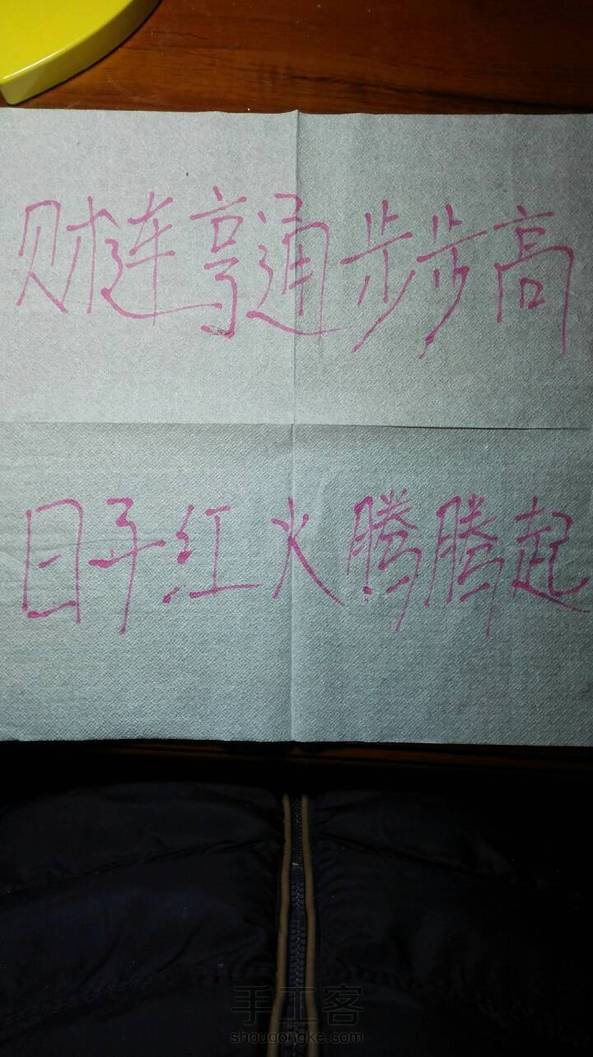 财连亨通步步高
日子红火腾腾起
手工客
shougongke.com